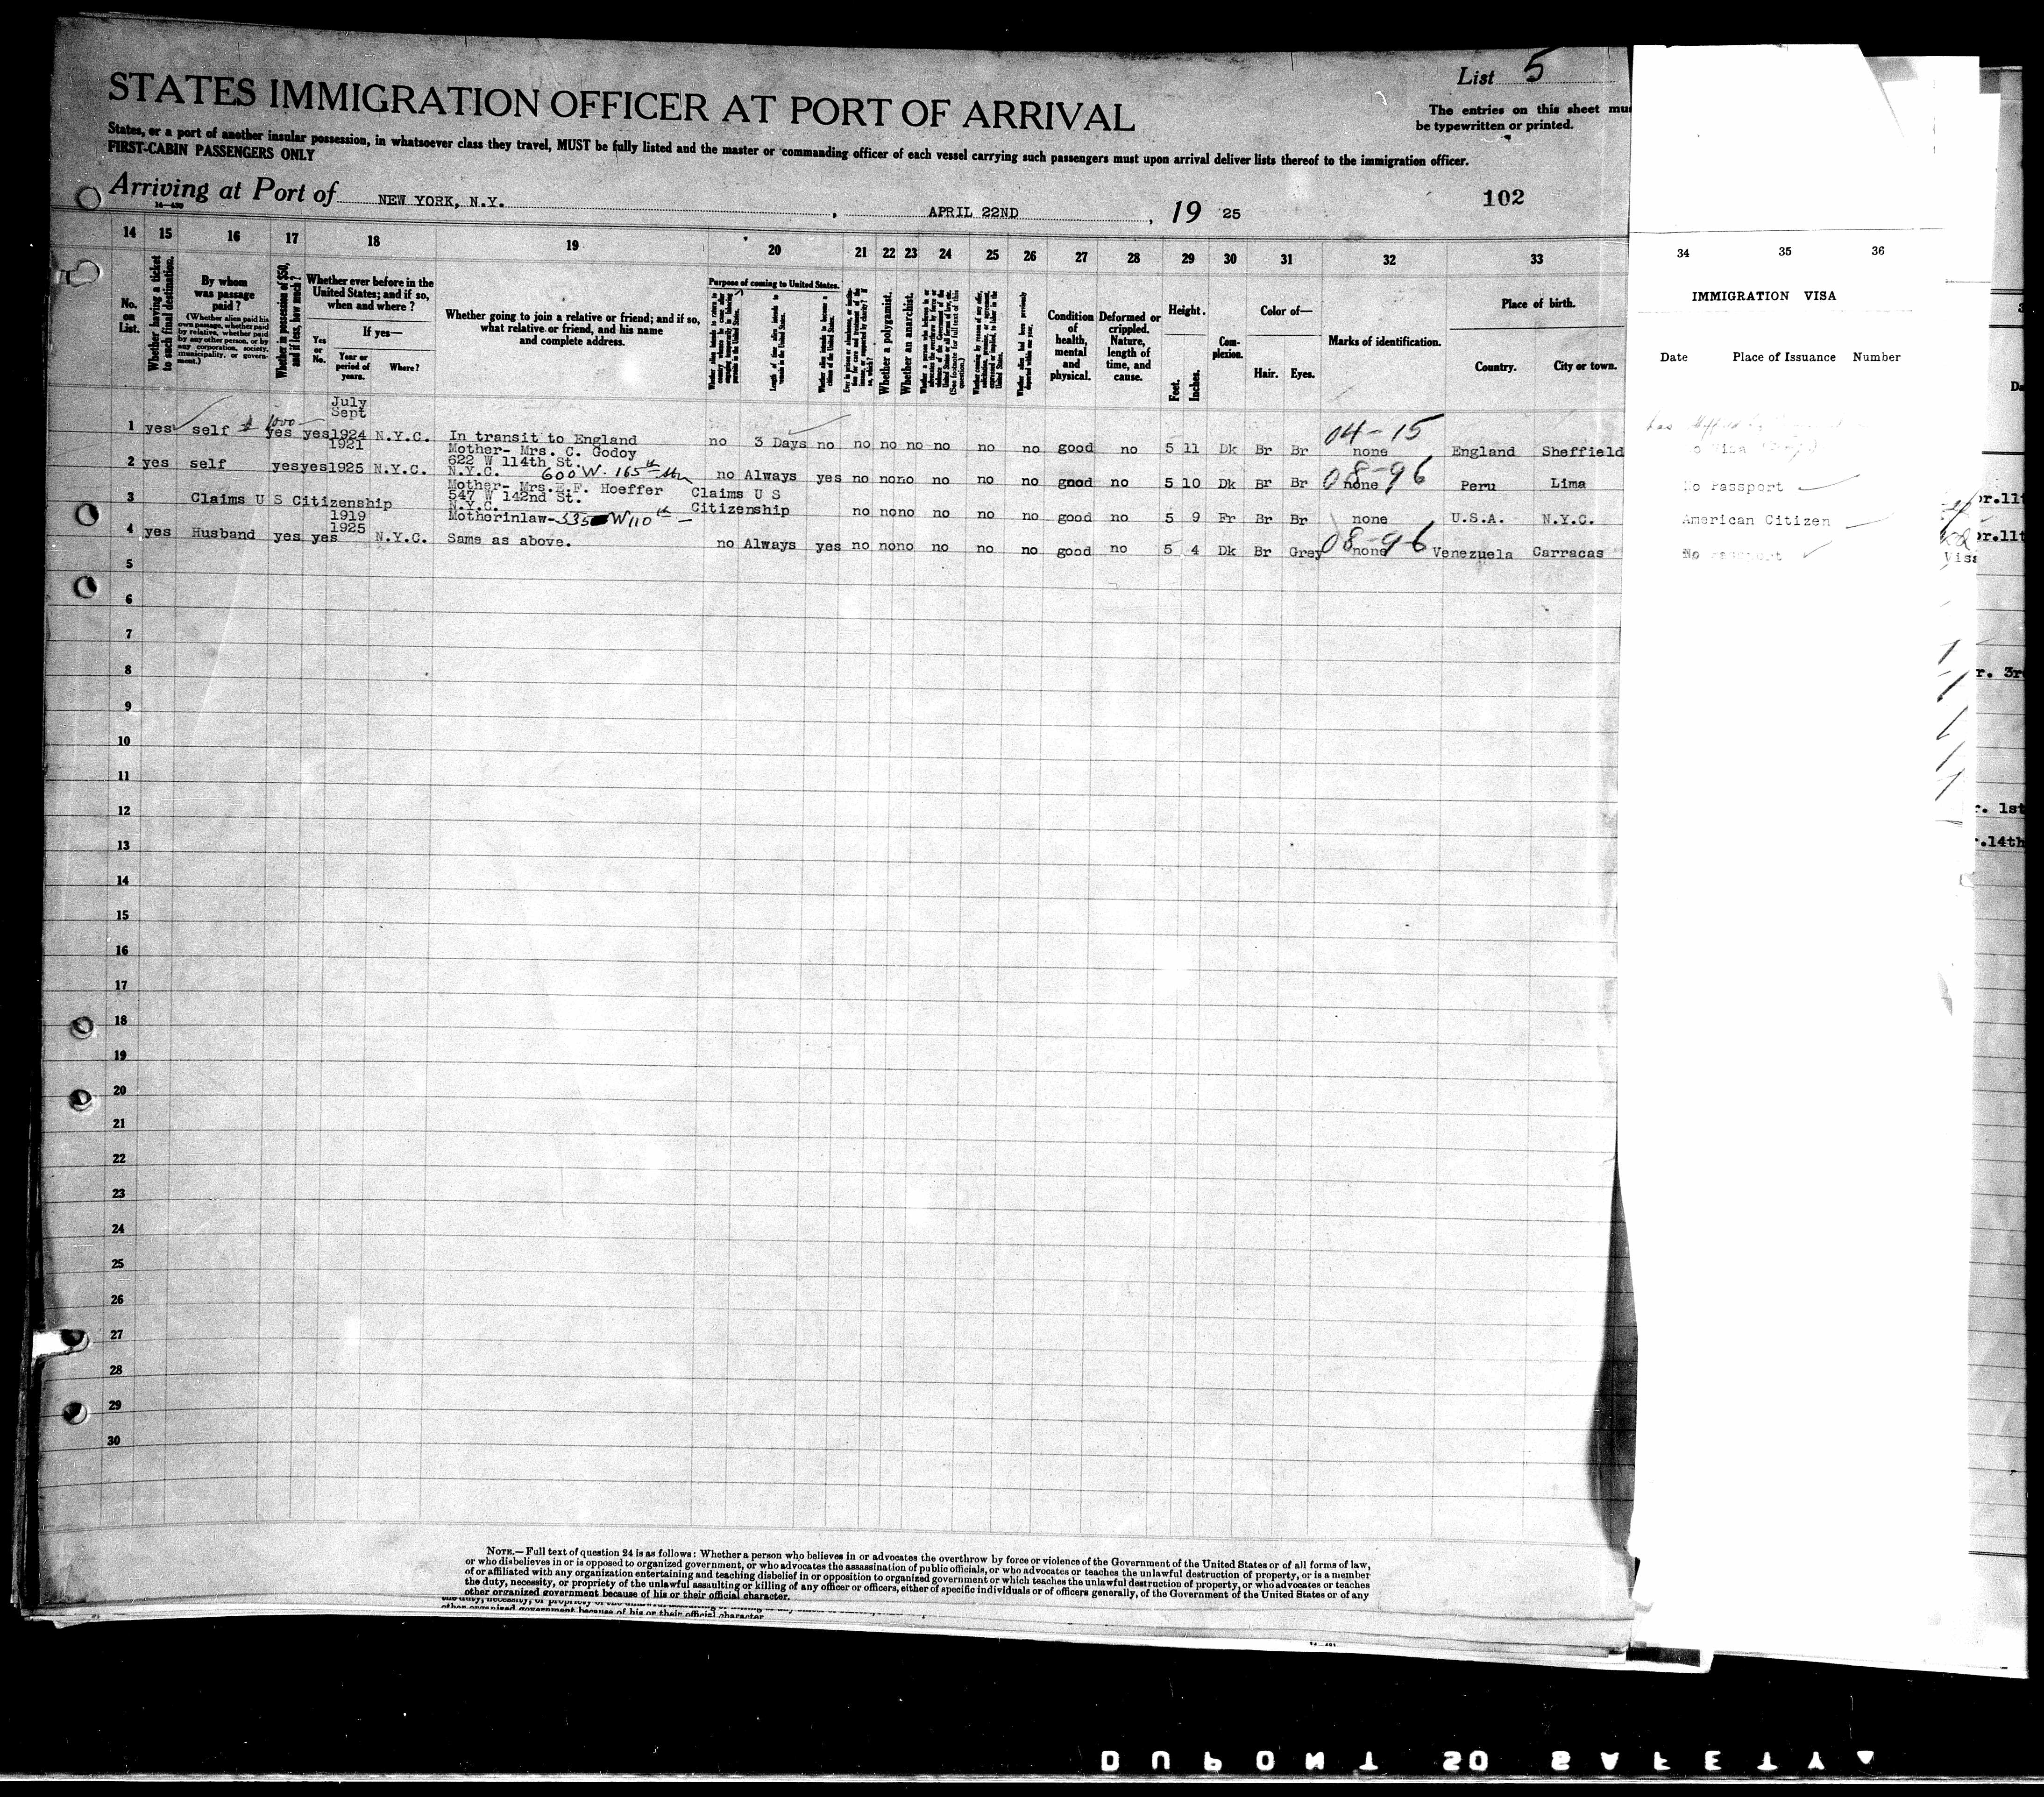 List 5
STATES IMMIGRATION OFFICER AT PORT OF ARRIVAL
The entries on this sheet mu
be typewritten or printed.
States, or a port of another insular possession, in whatsoever class they travel, MUST be fully listed and the master or commanding officer of each vessel carrying such passengers must upon arrival deliver lists thereof to the immigration officer.
FIRST-CABIN PASSENGERS ONLY
Arriving at Port of NEW YORK, N.Y., APRIL 22ND, 19 25
102
14 15 16 17 18 19 20 21 22 23 24 25 26 27 28 29 30 31 32 33 34 35 36
No. on List.
Whether having a ticket to such final destination.
By whom was passage paid?
(Whether alien paid his own passage, whether paid by relative, whether paid by any other person, or by any corporation, society, municipality, or government.)
Whether in possession of $50, and if less, how much?
Whether ever before in the United States; and if so, when and where?
Yes or No.
If yes—
Year or period of years.
Where?
Whether going to join a relative or friend; and if so, what relative or friend, and his name and complete address.
Purpose of coming to United States.
Length of time alien intends to remain in the United States.
Whether alien intends to become a citizen of the United States.
Whether a polygamist.
Whether an anarchist.
Condition of health, mental and physical.
Deformed or crippled. Nature, length of time, and cause.
Height.
Feet. Inches.
Complexion.
Color of—
Hair. Eyes.
Marks of identification.
Place of birth.
Country. City or town.
IMMIGRATION VISA
Date Place of Issuance Number
July
Sept
1 yes self $ 1000 yes yes 1924 N.Y.C. In transit to England no 3 Days no no no no no no no good no 5 11 Dk Br Br 04-15 none England Sheffield
1921 Mother- Mrs. C. Godoy
622 W 114th St.
2 yes self yes yes 1925 N.Y.C. N.Y.C. 600 W. 165th no Always yes no no no no no no good no 5 10 Dk Br Br 08-96 none Peru Lima No Passport
Mother- Mrs. E.F. Hoeffer
547 W 142nd St.
3 Claims U S Citizenship N.Y.C. Claims U S Citizenship no no no no no no good no 5 9 Fr Br Br none U.S.A. N.Y.C. American Citizen
1919 Motherinlaw- 535 W 110th
4 yes Husband yes yes 1925 N.Y.C. Same as above. no Always yes no no no no no no good no 5 4 Dk Br Grey 08-96 none Venezuela Carracas No Passport
5
6
7
8
9
10
11
12
13
14
15
16
17
18
19
20
21
22
23
24
25
26
27
28
29
30
r.11t
r.11t
Visa
r. 3r
r. 1st
.14th
NOTE.—Full text of question 24 is as follows: Whether a person who believes in or advocates the overthrow by force or violence of the Government of the United States or of all forms of law,
or who disbelieves in or is opposed to organized government, or who advocates the assassination of public officials, or who advocates or teaches the unlawful destruction of property, or is a member
of or affiliated with any organization entertaining and teaching disbelief in or opposition to organized government or which teaches the unlawful destruction of property, or who advocates or teaches
the duty, necessity, or propriety of the unlawful assaulting or killing of any officer or officers, either of specific individuals or of officers generally, of the Government of the United States or of any
other organized government because of his or their official character.
other organized government because of his or their official character
DUPONT SO SAFETY